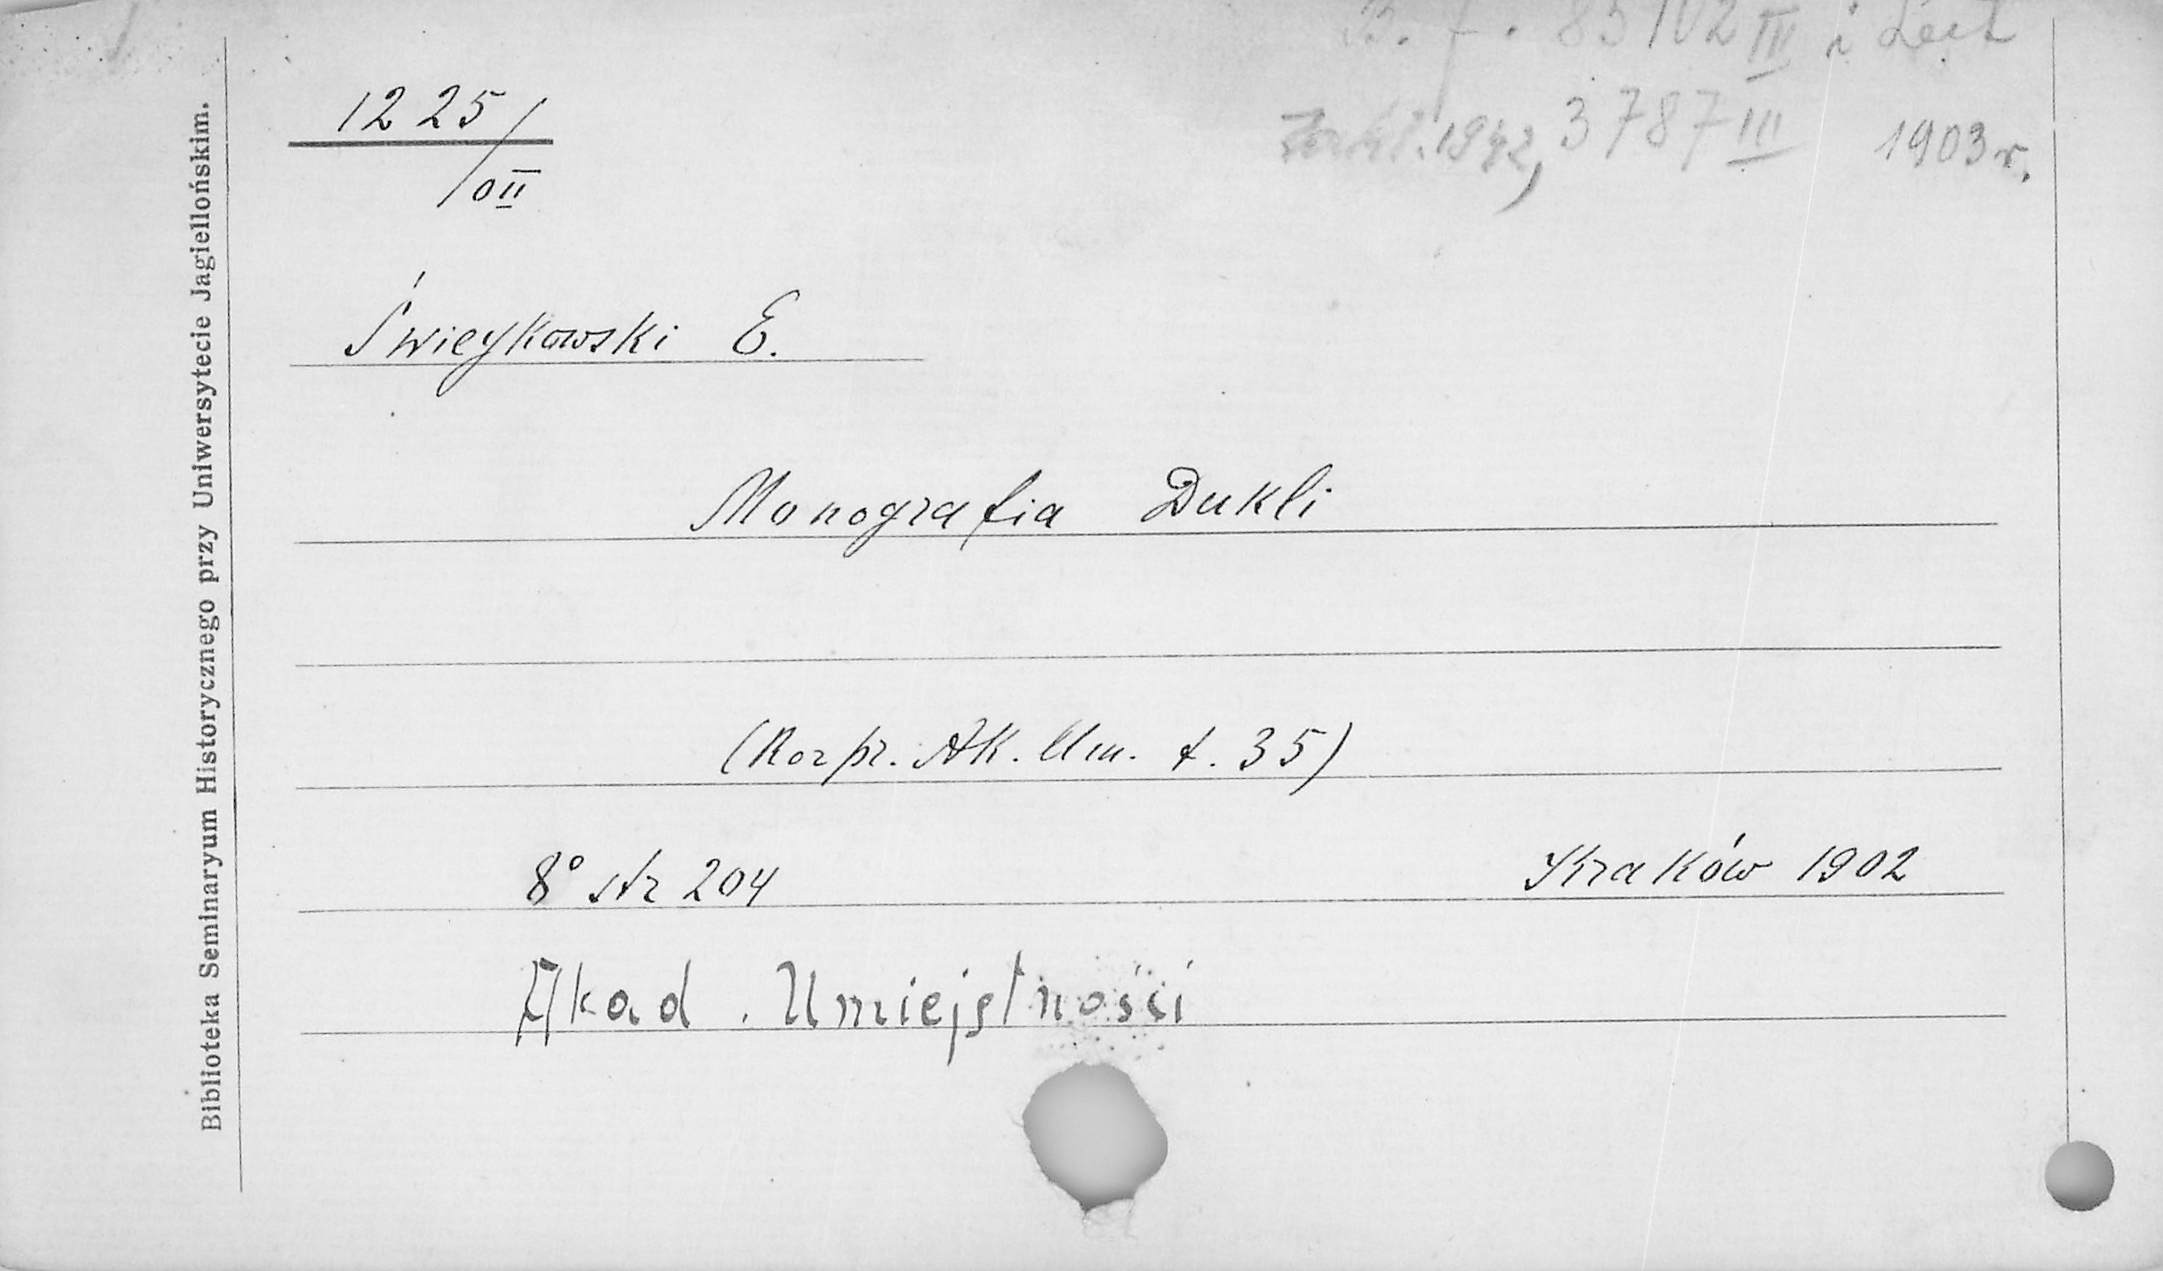 B. J. 85102 III i Lect
1942, 3787 III 1903 r.
1225/
/0II
Świeykowski E.
Monografia Dukli
(Rozpr. Ak. Um. t. 35)
8° str 204 Kraków 1902
Akad. Umiejstności
Biblioteka Seminaryum Historycznego przy Uniwersytecie Jagiellońskim.